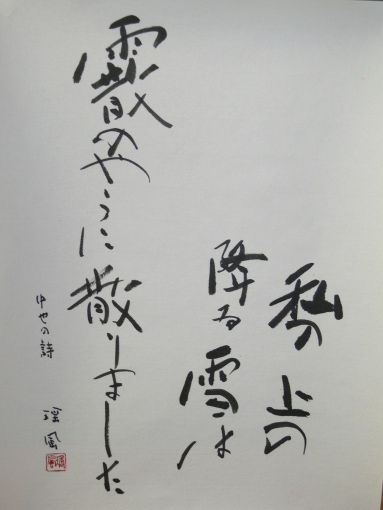 私の上の
降る雪は
霰のやうに散りました
中也の詩
瑶風